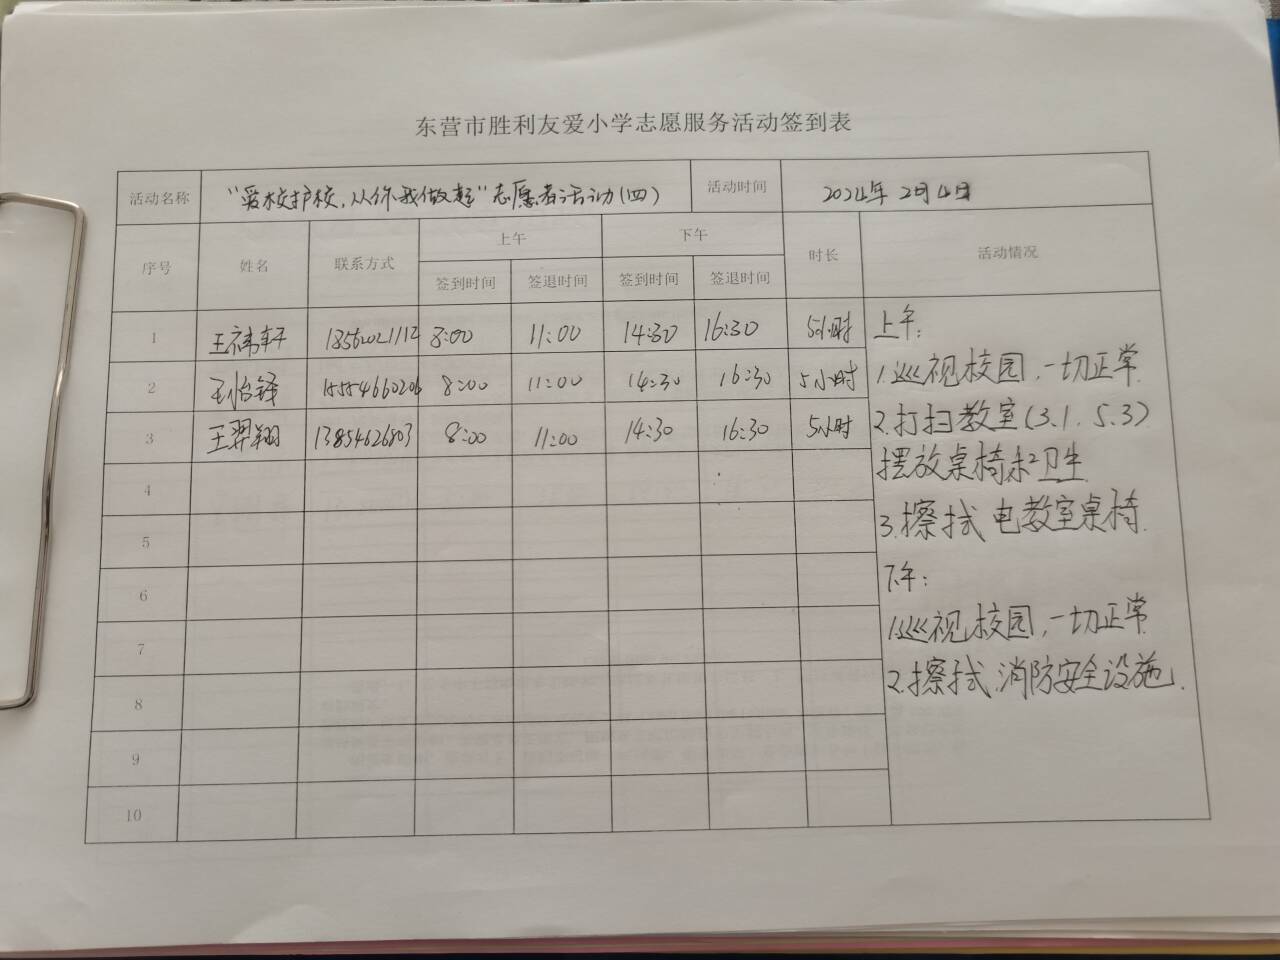 东营市胜利友爱小学志愿服务活动签到表
活动名称 “爱校护校，从你我做起”志愿者活动（四） 活动时间 2024年2月4日
序号 姓名 联系方式 上午 下午 时长 活动情况
签到时间 签退时间 签到时间 签退时间
1 王祎轩 8:00 11:00 14:30 16:30 5小时
2 王怡铎 15554660206 8:00 11:00 14:30 16:30 5小时
3 王羿翔 13854626803 8:00 11:00 14:30 16:30 5小时
4
5
6
7
8
9
10
上午：
1.巡视校园，一切正常.
2.打扫教室（3.1，5.3）
摆放桌椅和卫生
3.擦拭电教室桌椅.
下午：
1.巡视校园，一切正常
2.擦拭消防安全设施.